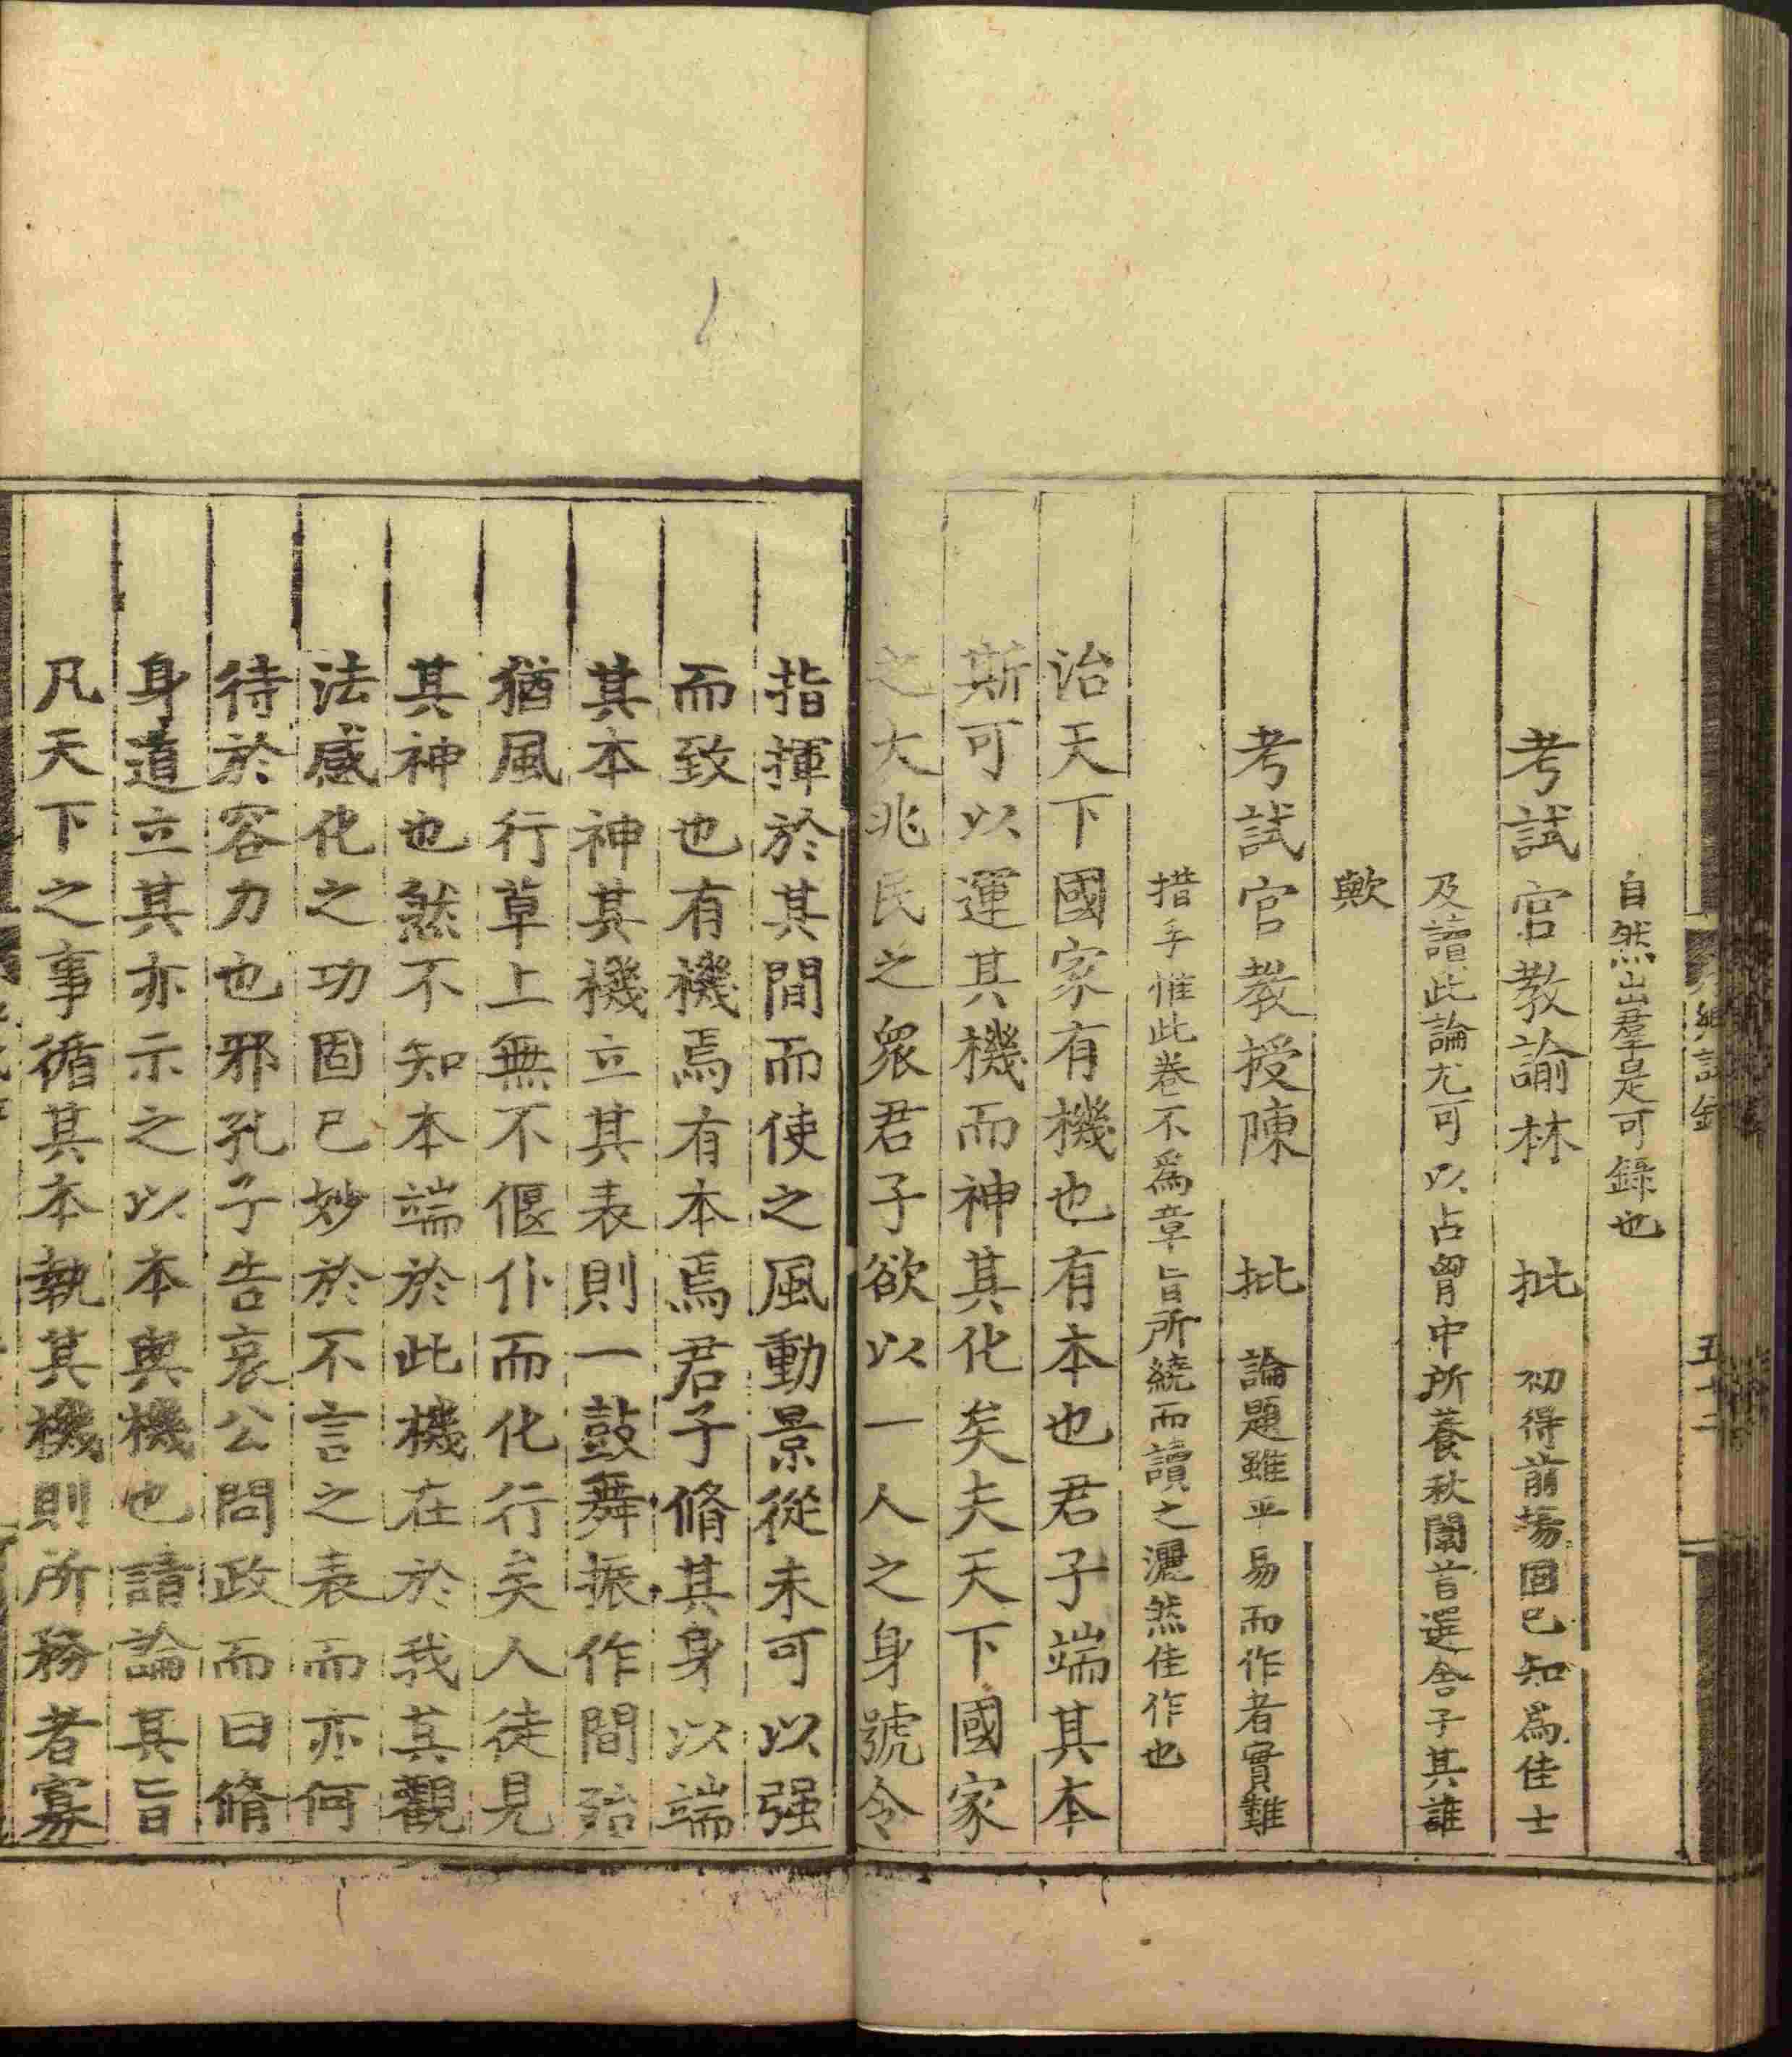 自然出羣是可錄也
考試官教諭林 批 初得前場固已知爲佳士
及讀此論尤可以占胷中所養秋闈首選舍子其誰
歟
考試官教授陳 批 論題雖平易而作者實難
措手惟此卷不爲章旨所繞而讀之灑然佳作也
治天下國家有機也有本也君子端其本
斯可以運其機而神其化矣夫天下國家
之大兆民之衆君子欲以一人之身號令
指揮於其間而使之風動景從未可以强
而致也有機焉有本焉君子脩其身以端
其本神其機立其表則一鼓舞振作間殆
猶風行草上無不偃仆而化行矣人徒見
其神也然不知本端於此機在於我其觀
法感化之功固已妙於不言之表而亦何
待於容力也邪孔子告哀公問政而曰脩
身道立其亦示之以本與機也請論其旨
凡天下之事循其本執其機則所務者寡
五十二